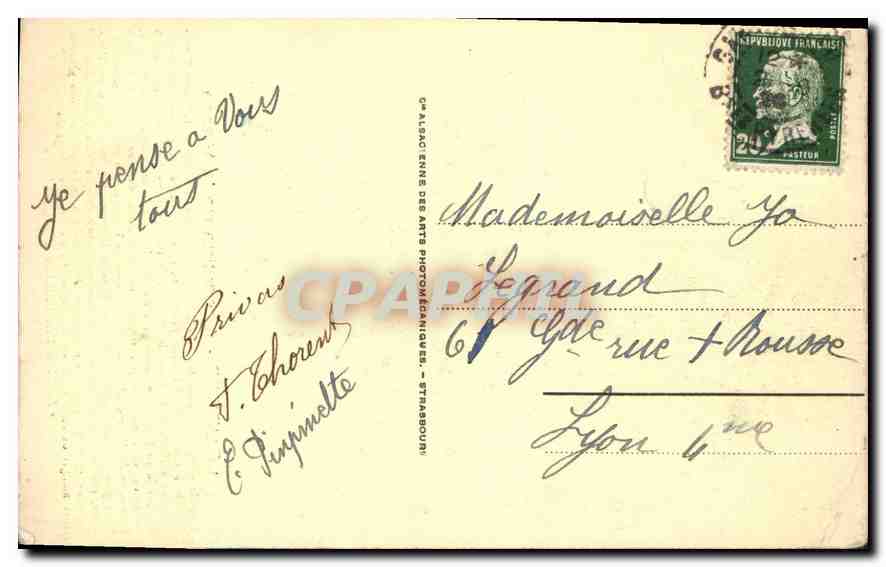 Je pense a Vous
tous.
Privas
T. Thorent
E. Pinpinette
Cie ALSACIENNE DES ARTS PHOTOMÉCANIQUES. – STRASBOURG
REPVBLIQUE FRANÇAISE
POSTES
20c
PASTEUR
CPAPHIL
Mademoiselle Yo
Legrand
61 Gde rue + Rousse
Lyon 4me